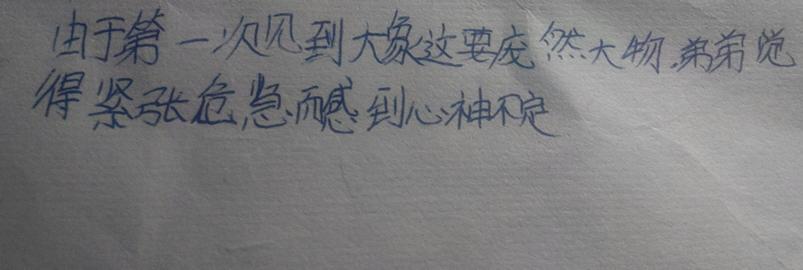 由于第一次见到大象这要庞然大物，弟弟觉
得紧张危急而感到心神不定